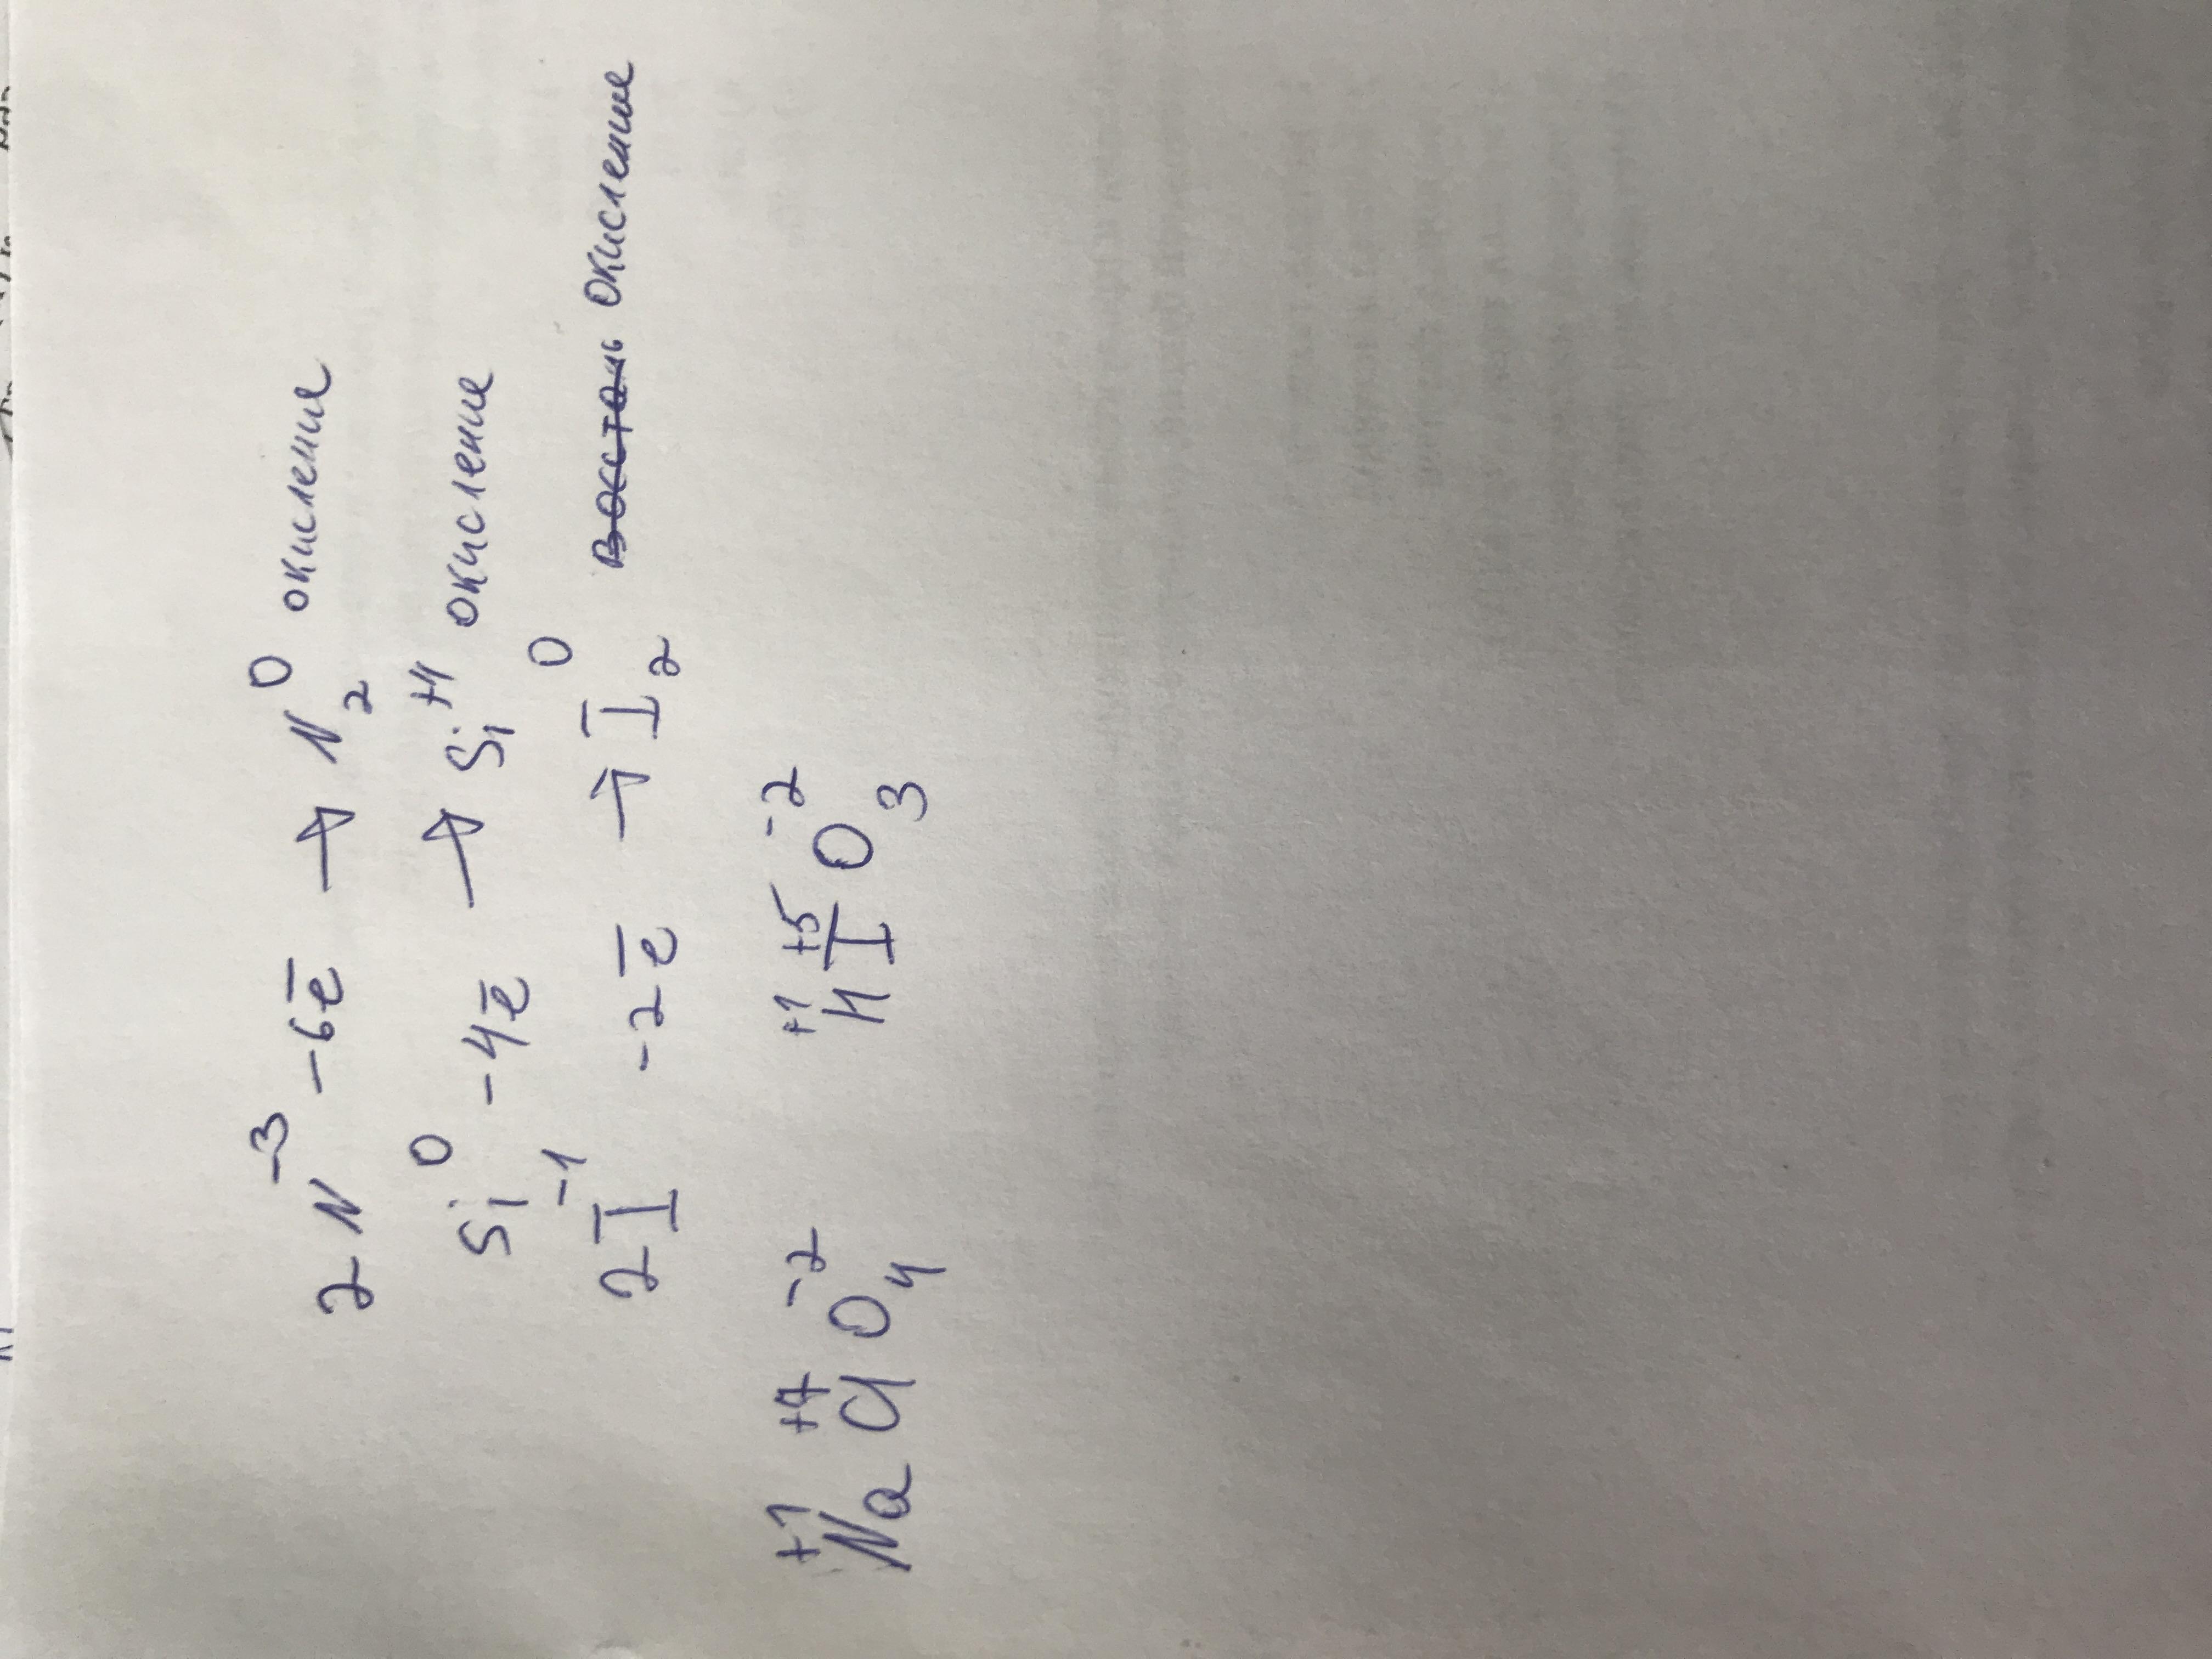 2N⁻³ -6ē → N₂⁰ окисление
Si⁰ -4ē → Si⁺⁴ окисление
2I⁻¹ -2ē → I₂⁰ ~~восстань~~ окисление
Na⁺¹Cl⁺⁷O₄⁻² H⁺¹I⁺⁵O₃⁻²